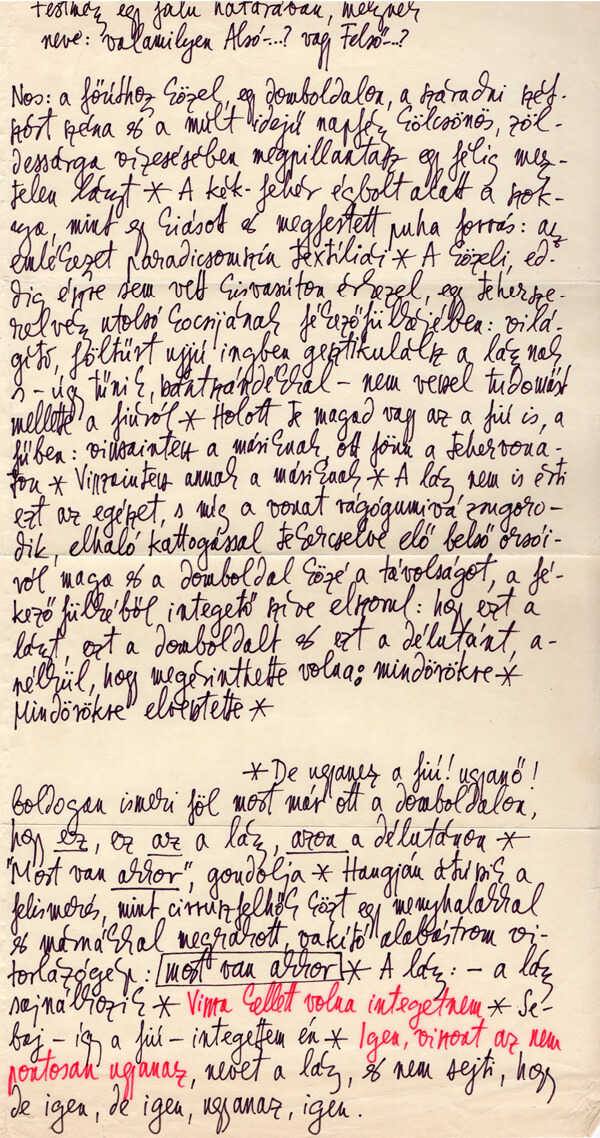 egy falu határában, melynek
neve: valamilyen Alsó-...? vagy Felső-...?
Nos: a főúthoz közel, egy domboldalon, a száradni szét-
szórt széna s a múlt idejű napfény kölcsönös, zöl-
dessárga vízesésében megpillantasz egy félig mez-
telen lányt * A kék-fehér égbolt alatt a szok-
nya, mint egy kiásott és megfestett puha forrás: az
emlékezet paradicsomszín textiliái * A közeli, ed-
dig észre sem vett kisvasúton érkezel, egy tehersze-
relvény utolsó kocsijának fékezőfülkéjében: vilá-
gító, föltűrt ujjú ingben gesztikulálsz a lánynak
s - úgy tűnik, bántószándékkal - nem veszel tudomást
mellette a fiúról * Holott te magad vagy az a fiú is, a
fűben: visszaintesz a másiknak, ott fönn a tehervona-
ton * Visszaintesz annak a másiknak * A lány nem is érti
ezt az egészet, s míg a vonat rágógumivá zsugoro-
dik, elhaló kattogással tekercselve elő belső orsói-
ról maga és a domboldal közé a távolságot, a fé-
kezőfülkéből integető szíve elszorul: hogy ezt a
lányt, ezt a domboldalt és ezt a délutánt, a-
nélkül, hogy megérinthette volna: mindörökre *
Mindörökre elvesztette *
* De ugyanez a fiú! ugyanő!
boldogan ismeri föl most már ott a domboldalon,
hogy ez, ez az a lány, azon a délutánon *
"Most van akkor", gondolja * Hangján átüt a
felismerés, mint cirruszfelhők közt egy mennyhalakkal
és márnákkal megrakott, vakító alabástrom vi-
torlázógép: most van akkor * A lány: - a lány
sajnálkozik * Vissza kellett volna integetnem * Se-
baj - így a fiú - integettem én * Igen, viszont az nem
pontosan ugyanaz, nevet a lány, és nem sejti, hogy
de igen, de igen, ugyanaz, igen.